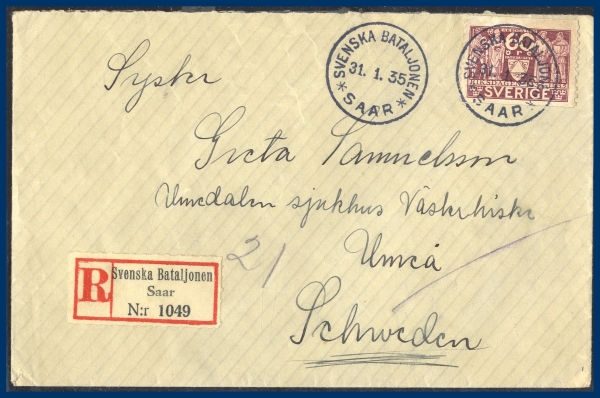 SVENSKA BATALJONEN
31. 1. 35
* SAAR *
SVENSKA BATALJONEN
SAAR
60
RIKSDAGEN
SVERIGE
Syster
Greta Samuelsson
Umedalen sjukhus Västerhiske
Umeå
Schweden
21
R
Svenska Bataljonen
Saar
N:r 1049